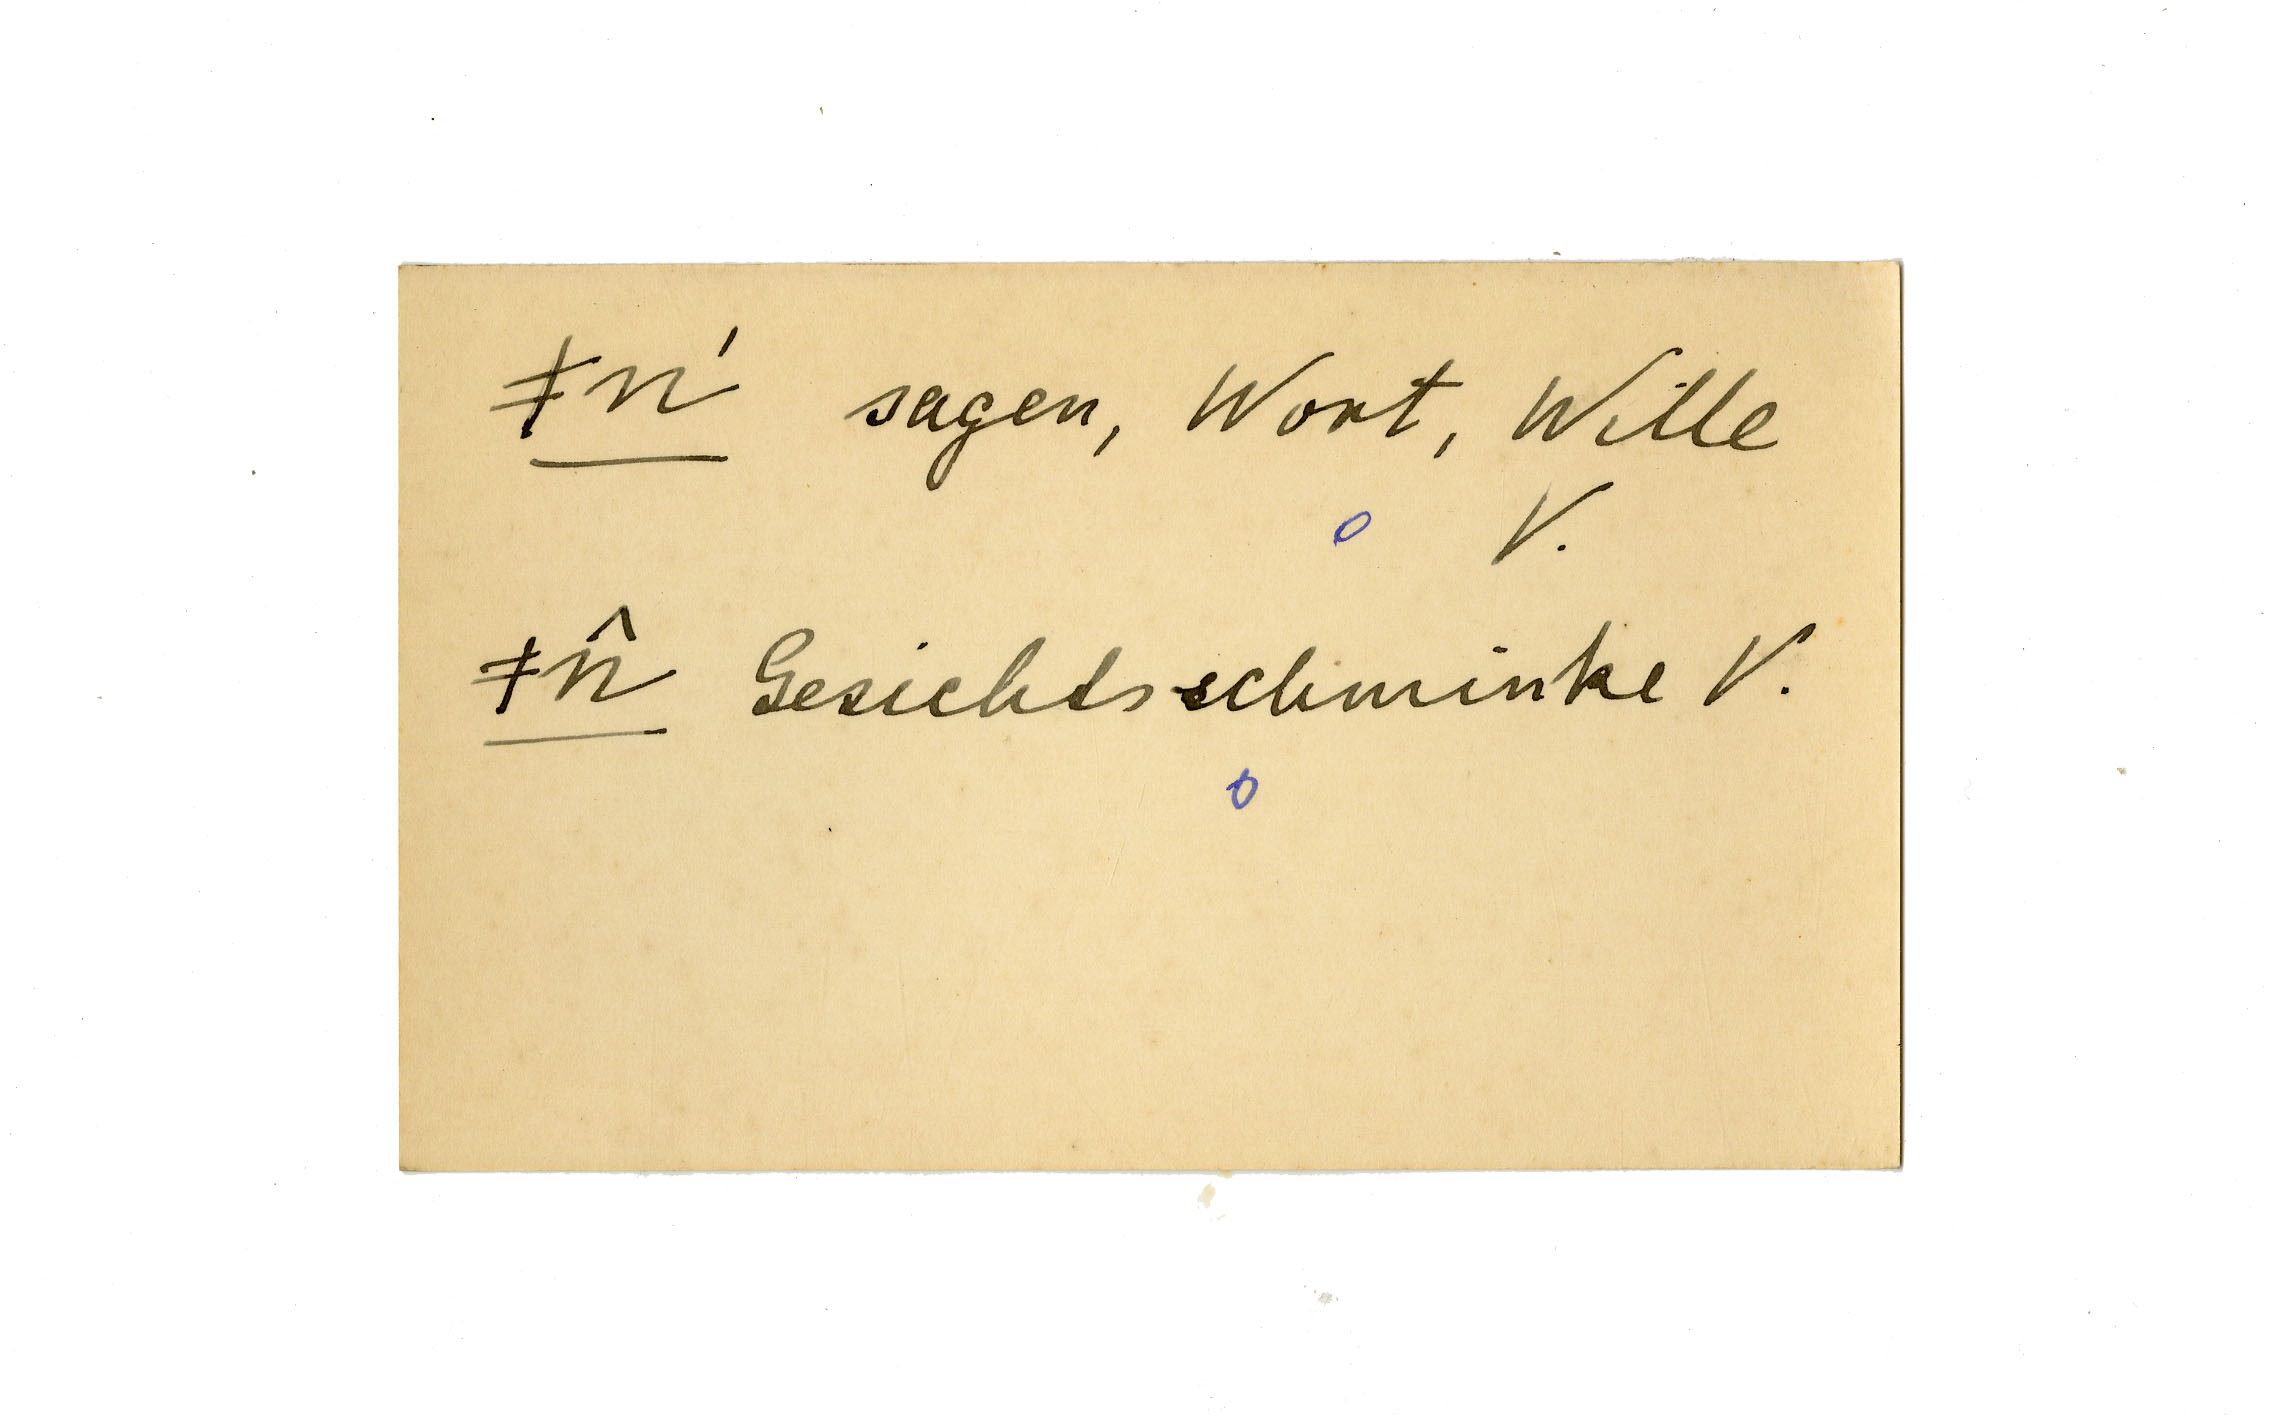 ǂń sagen, Wort, Wille
o V.
ǂn̂ Gesichtsschminke V.
o